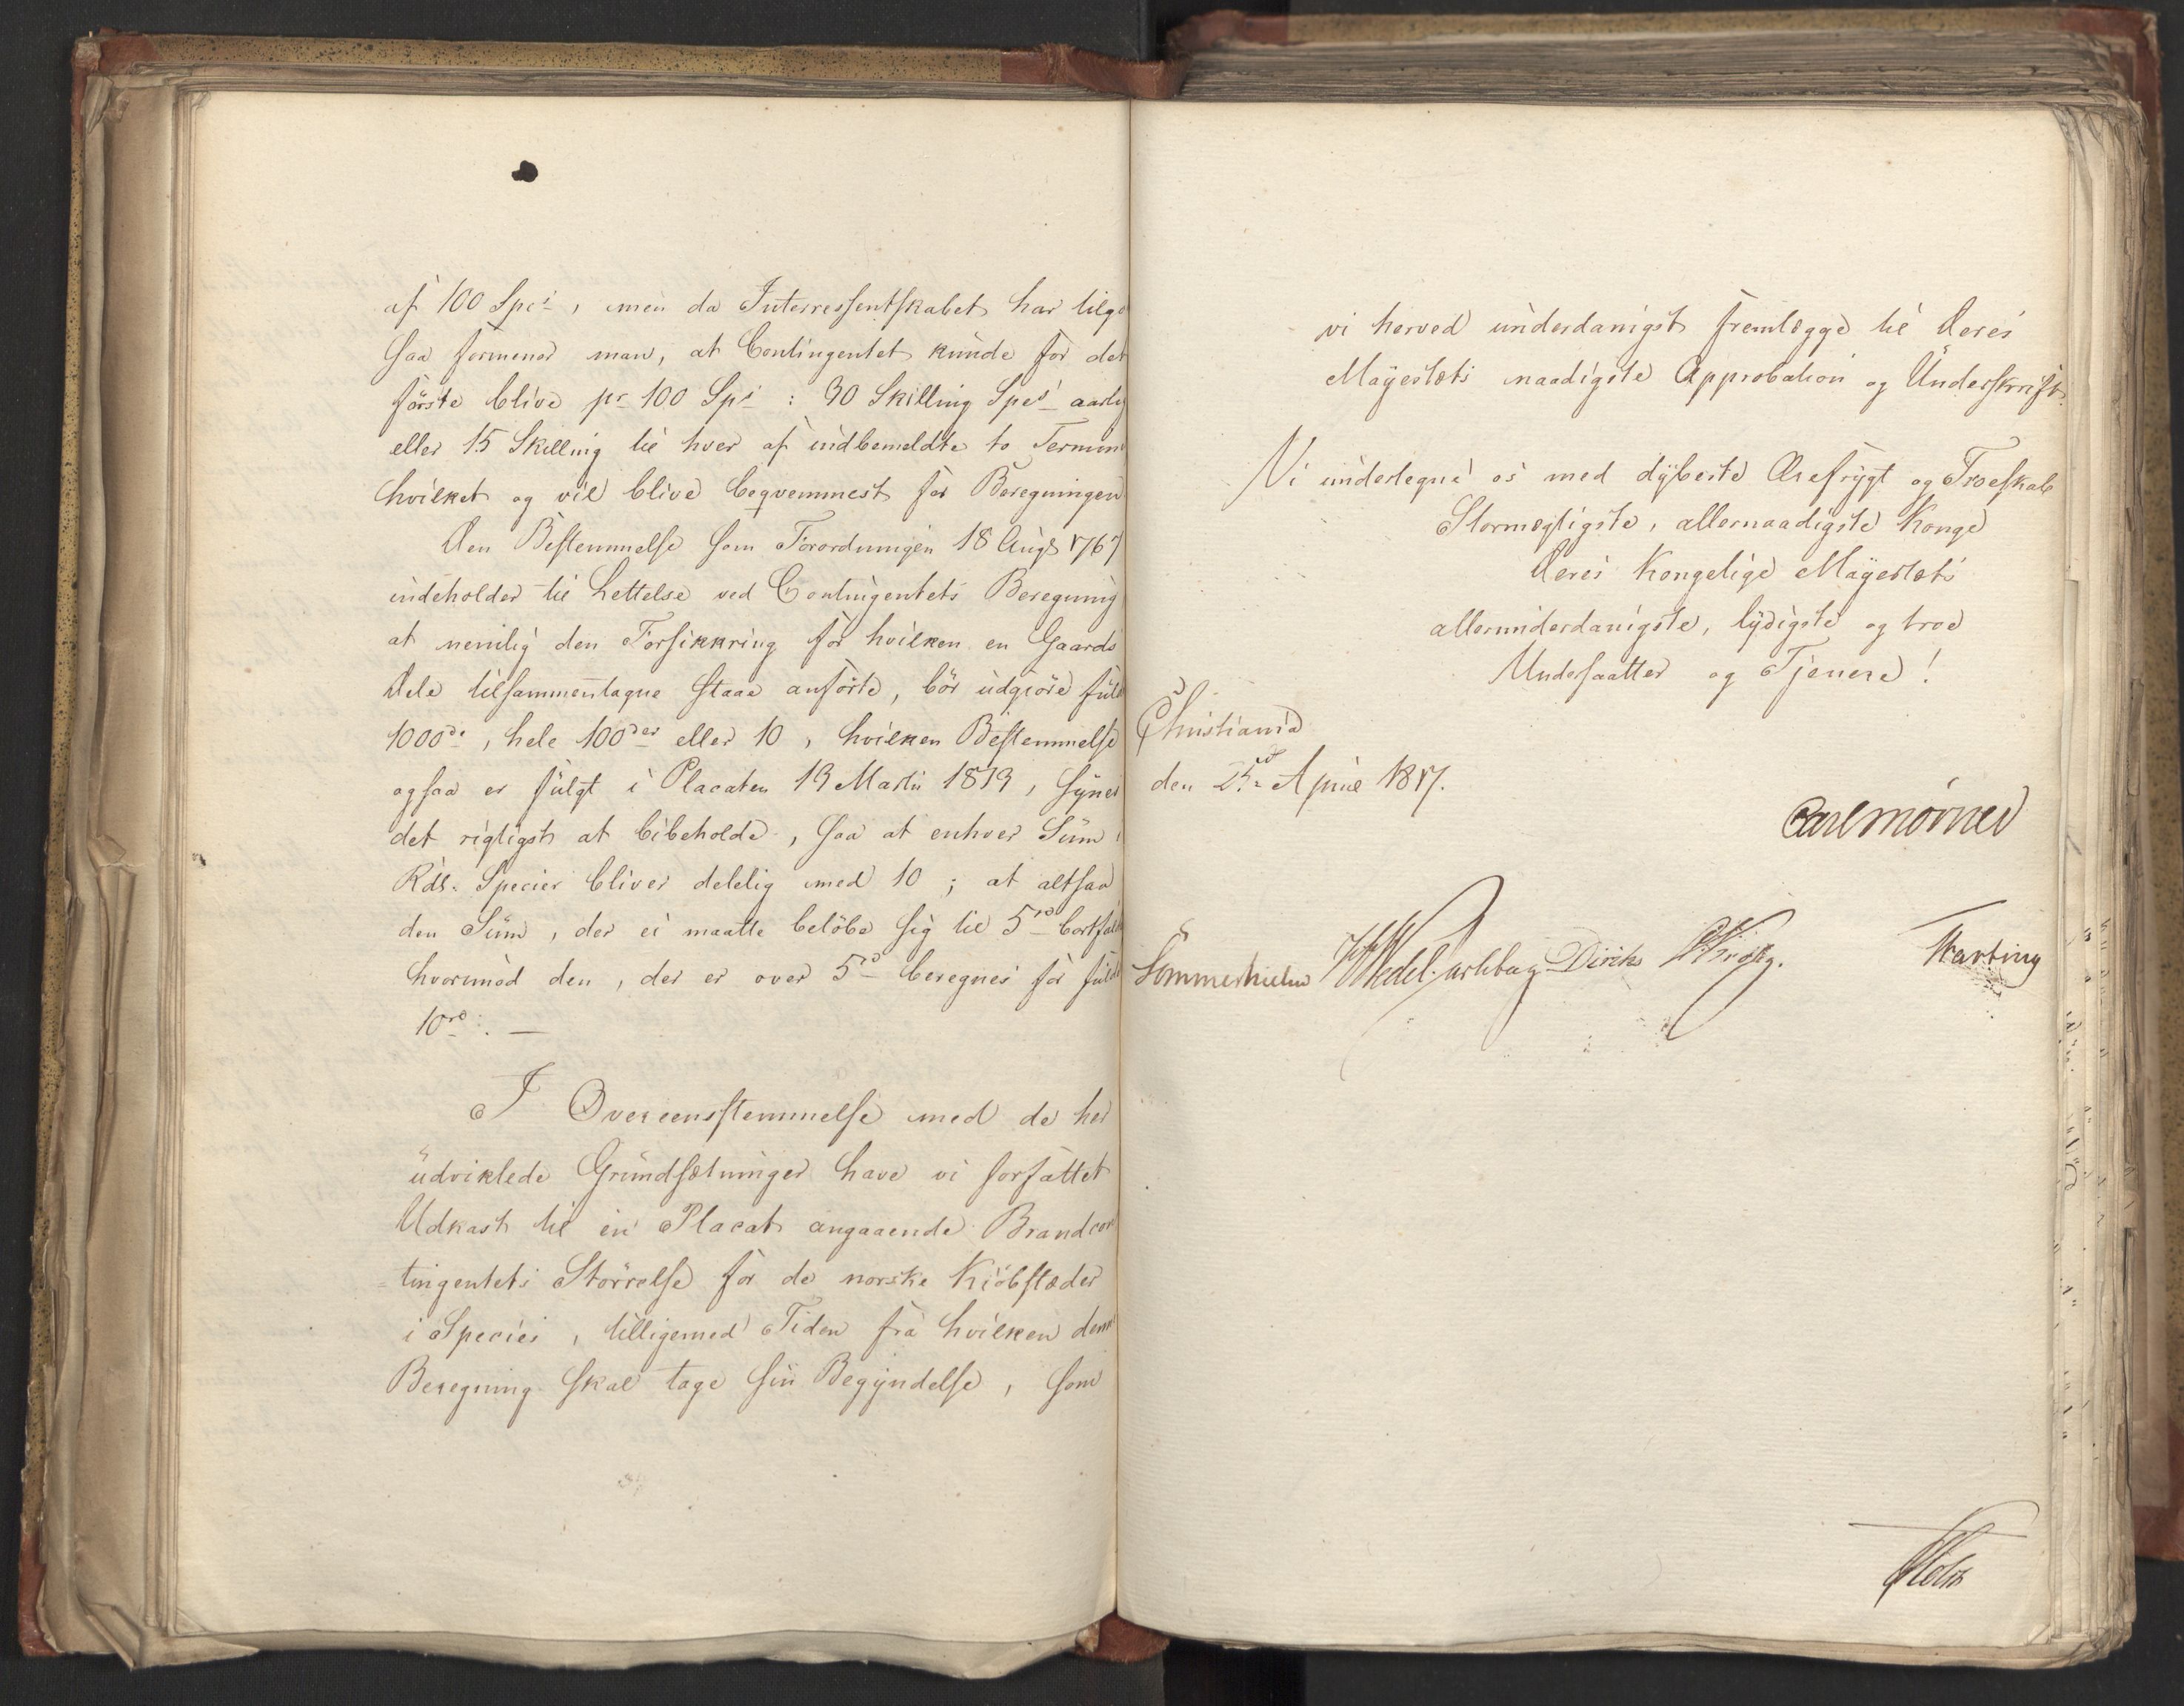 af 100 Spes, men da Interressentskabet har tilge
saa formener man, at Contingentet kunde for det
förste blive pr 100 Sps : 30 Skilling Spes aarlig
eller 15 Skilling til hver af indbemeldte to Termin
hvilket og vil blive beqvemmest for Beregningen
Den Bestemmelse som Forordningen 18 Augt 1767
indeholder til Lettelse ved Contingentets Beregning
at nemlig den Forsikkring for hvilken en Gaards
Dele tilsammentagne staae anförte, bör udgiöre fuld
1000de, hele 100der eller 10, hvilken Bestemmelse
ogsaa er fulgt i Placaten 13 Martii 1813, synes
det rigtigst at bibeholde, saa at enhver Sum i
Rdl. Species bliver delelig med 10; at altsaa
den Sum, der ei maatte belöbe sig til 5rd bortfald
hvorimod den, der er over 5rd beregnes for fuld
10rd. —
I Overeensstemmelse med de her
udviklede Grundsætninger have vi forfattet
Udkast til en Placat angaaende Brandcon
=tingentets Störrelse for de norske Kiöbstæder
i Species, tilligemed Tiden fra hvilken denn
Beregning skal tage sin Begyndelse, som
vi herved underdanigst fremlægge til Deres
Mayestæts naadigste Approbation og Underskrift.
Vi undertegne os med dybeste Ærefrygt og Troeskab
Stormægtigste, allernaadigste Konge
Deres Kongelige Mayestæts
allerunderdanigste, lydigste og troe
Undersaatter og Tjenere!
Christiania
den 25de April 1817.
Carl Mörner
Sommerhielm Wedel Jarlsberg Diriks Krogh. Hartung
Holst